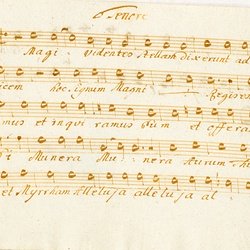 Tenore
Magi videntes stellam dixerunt ad
icem hoc signum Magni Regis es
mus et inqui ramus eum et offera
Ei Munera Mu: nera Aurum
et Myrrham Alleluja alleluja al